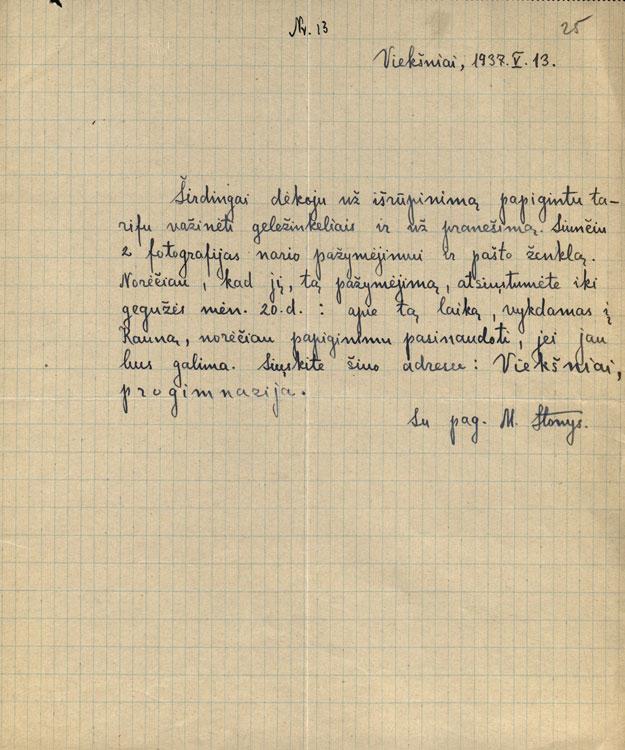 Nr. 13
25
Viekšniai, 1937.V.13.
Širdingai dėkoju už išrūpinimą papigintu ta-
rifu važinėti geležinkeliais ir už pranešimą. Siunčiu
2 fotografijas nario pažymėjimui ir pašto ženklą.
Norėčiau, kad jį, tą pažymėjimą, atsiųstumėte iki
gegužės mėn. 20.d. : apie tą laiką, vykdamas į
Kauną, norėčiau papiginimu pasinaudoti, jei jau
bus galima. Siųskite šiuo adresu: Viekšniai,
progimnazija.
Su pag. M. Stonys.